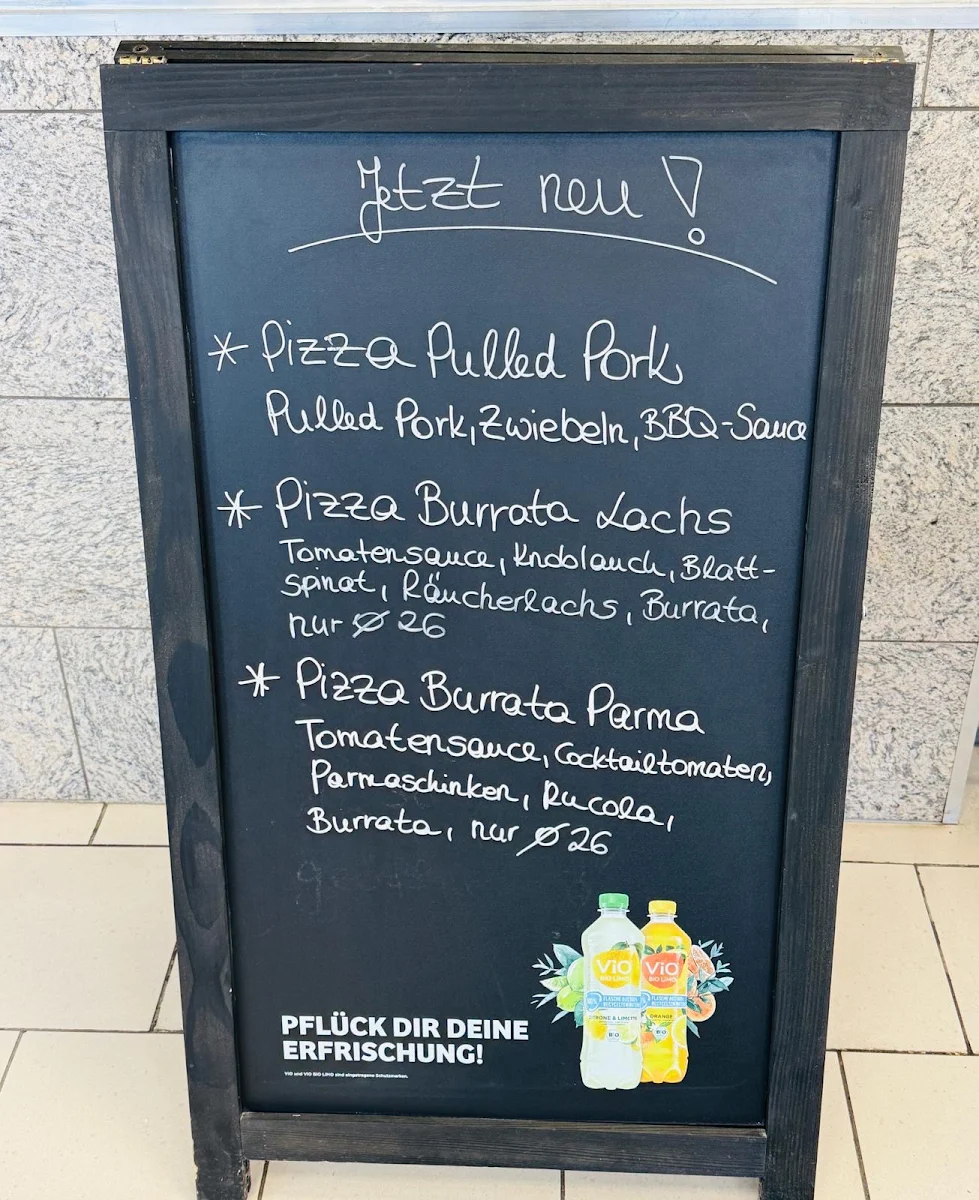 Jetzt neu!
* Pizza Pulled Pork
Pulled Pork, Zwiebeln, BBQ-Sauce
* Pizza Burrata Lachs
Tomatensauce, Knoblauch, Blatt-
spinat, Räucherlachs, Burrata,
nur Ø 26
* Pizza Burrata Parma
Tomatensauce, Cocktailtomaten,
Parmaschinken, Rucola,
Burrata, nur Ø 26
ViO
BIO LIMO
ViO
BIO LIMO
ORANGE
PFLÜCK DIR DEINE
ERFRISCHUNG!
ViO und ViO BiO LiMO sind eingetragene Schutzmarken.